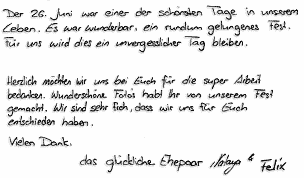 Der 26. Juni war einer der schönsten Tage in unserem
Leben. Es war wunderbar, ein rundum gelungenes Fest.
Für uns wird dies ein unvergesslicher Tag bleiben.
Herzlich möchten wir uns bei Euch für die super Arbeit
bedanken. Wunderschöne Fotos habt Ihr von unserem Fest
gemacht. Wir sind sehr froh, dass wir uns für Euch
entschieden haben.
Vielen Dank.
das glückliche Ehepaar & Felix